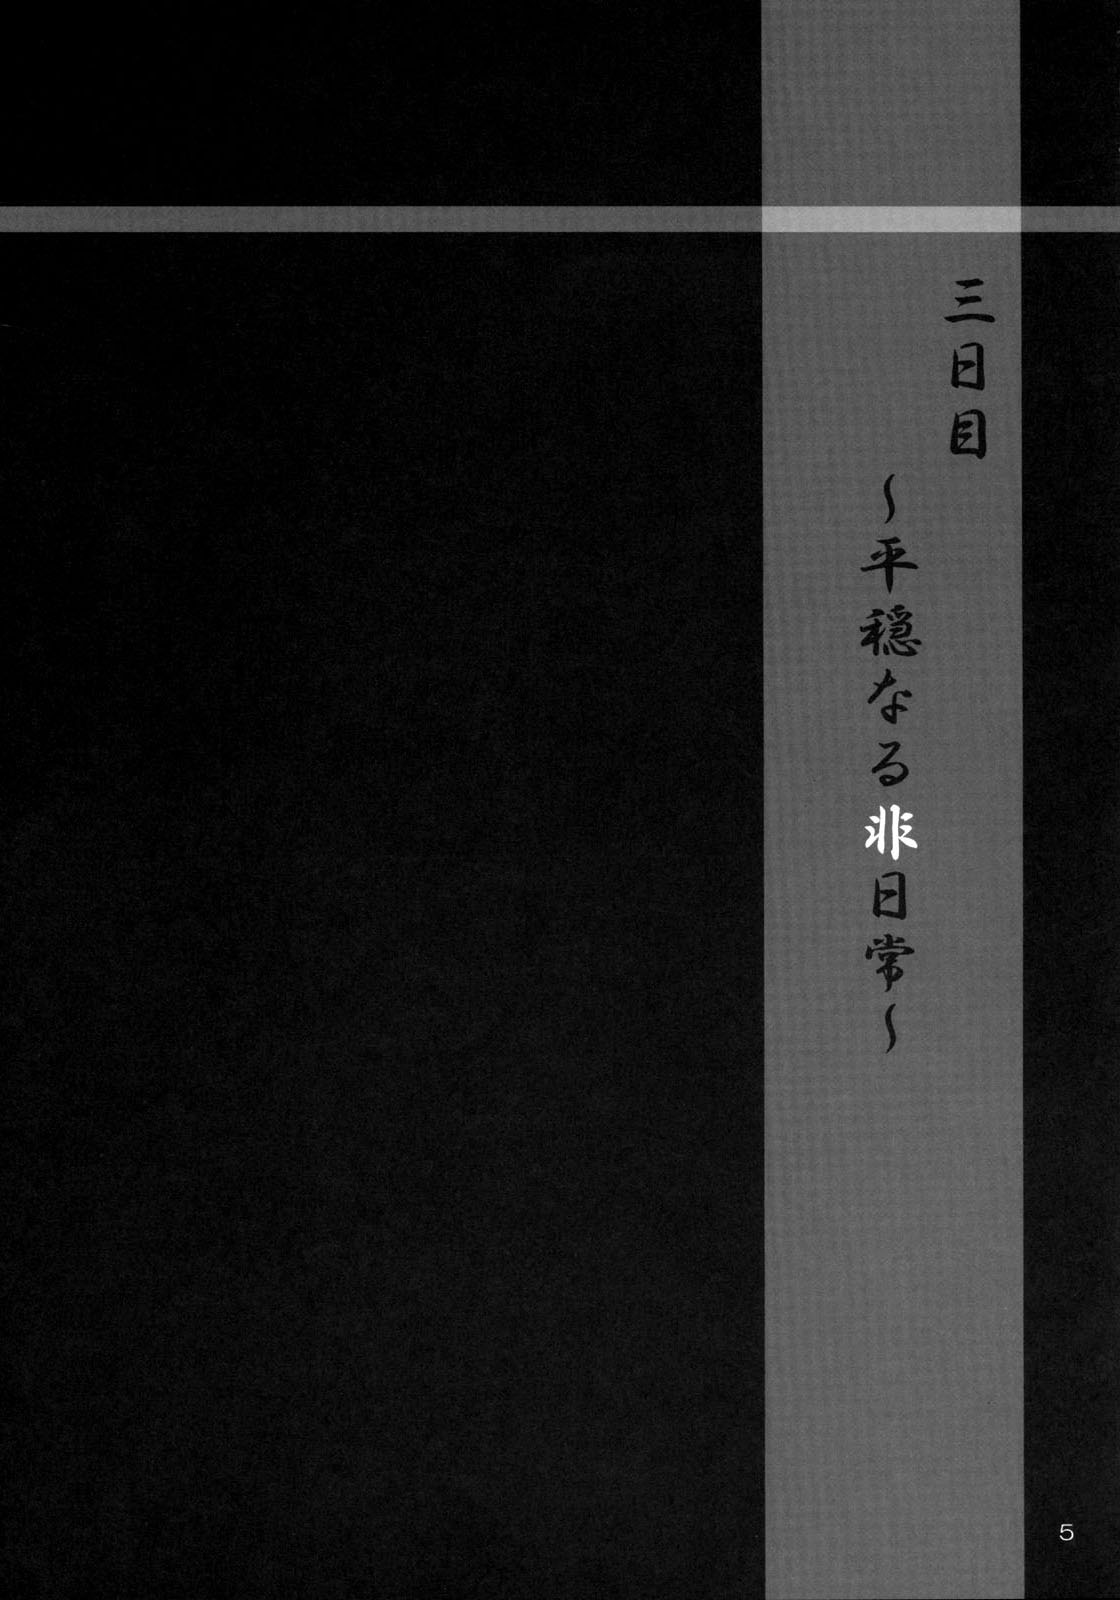 三日目
～平穏なる非日常～
5